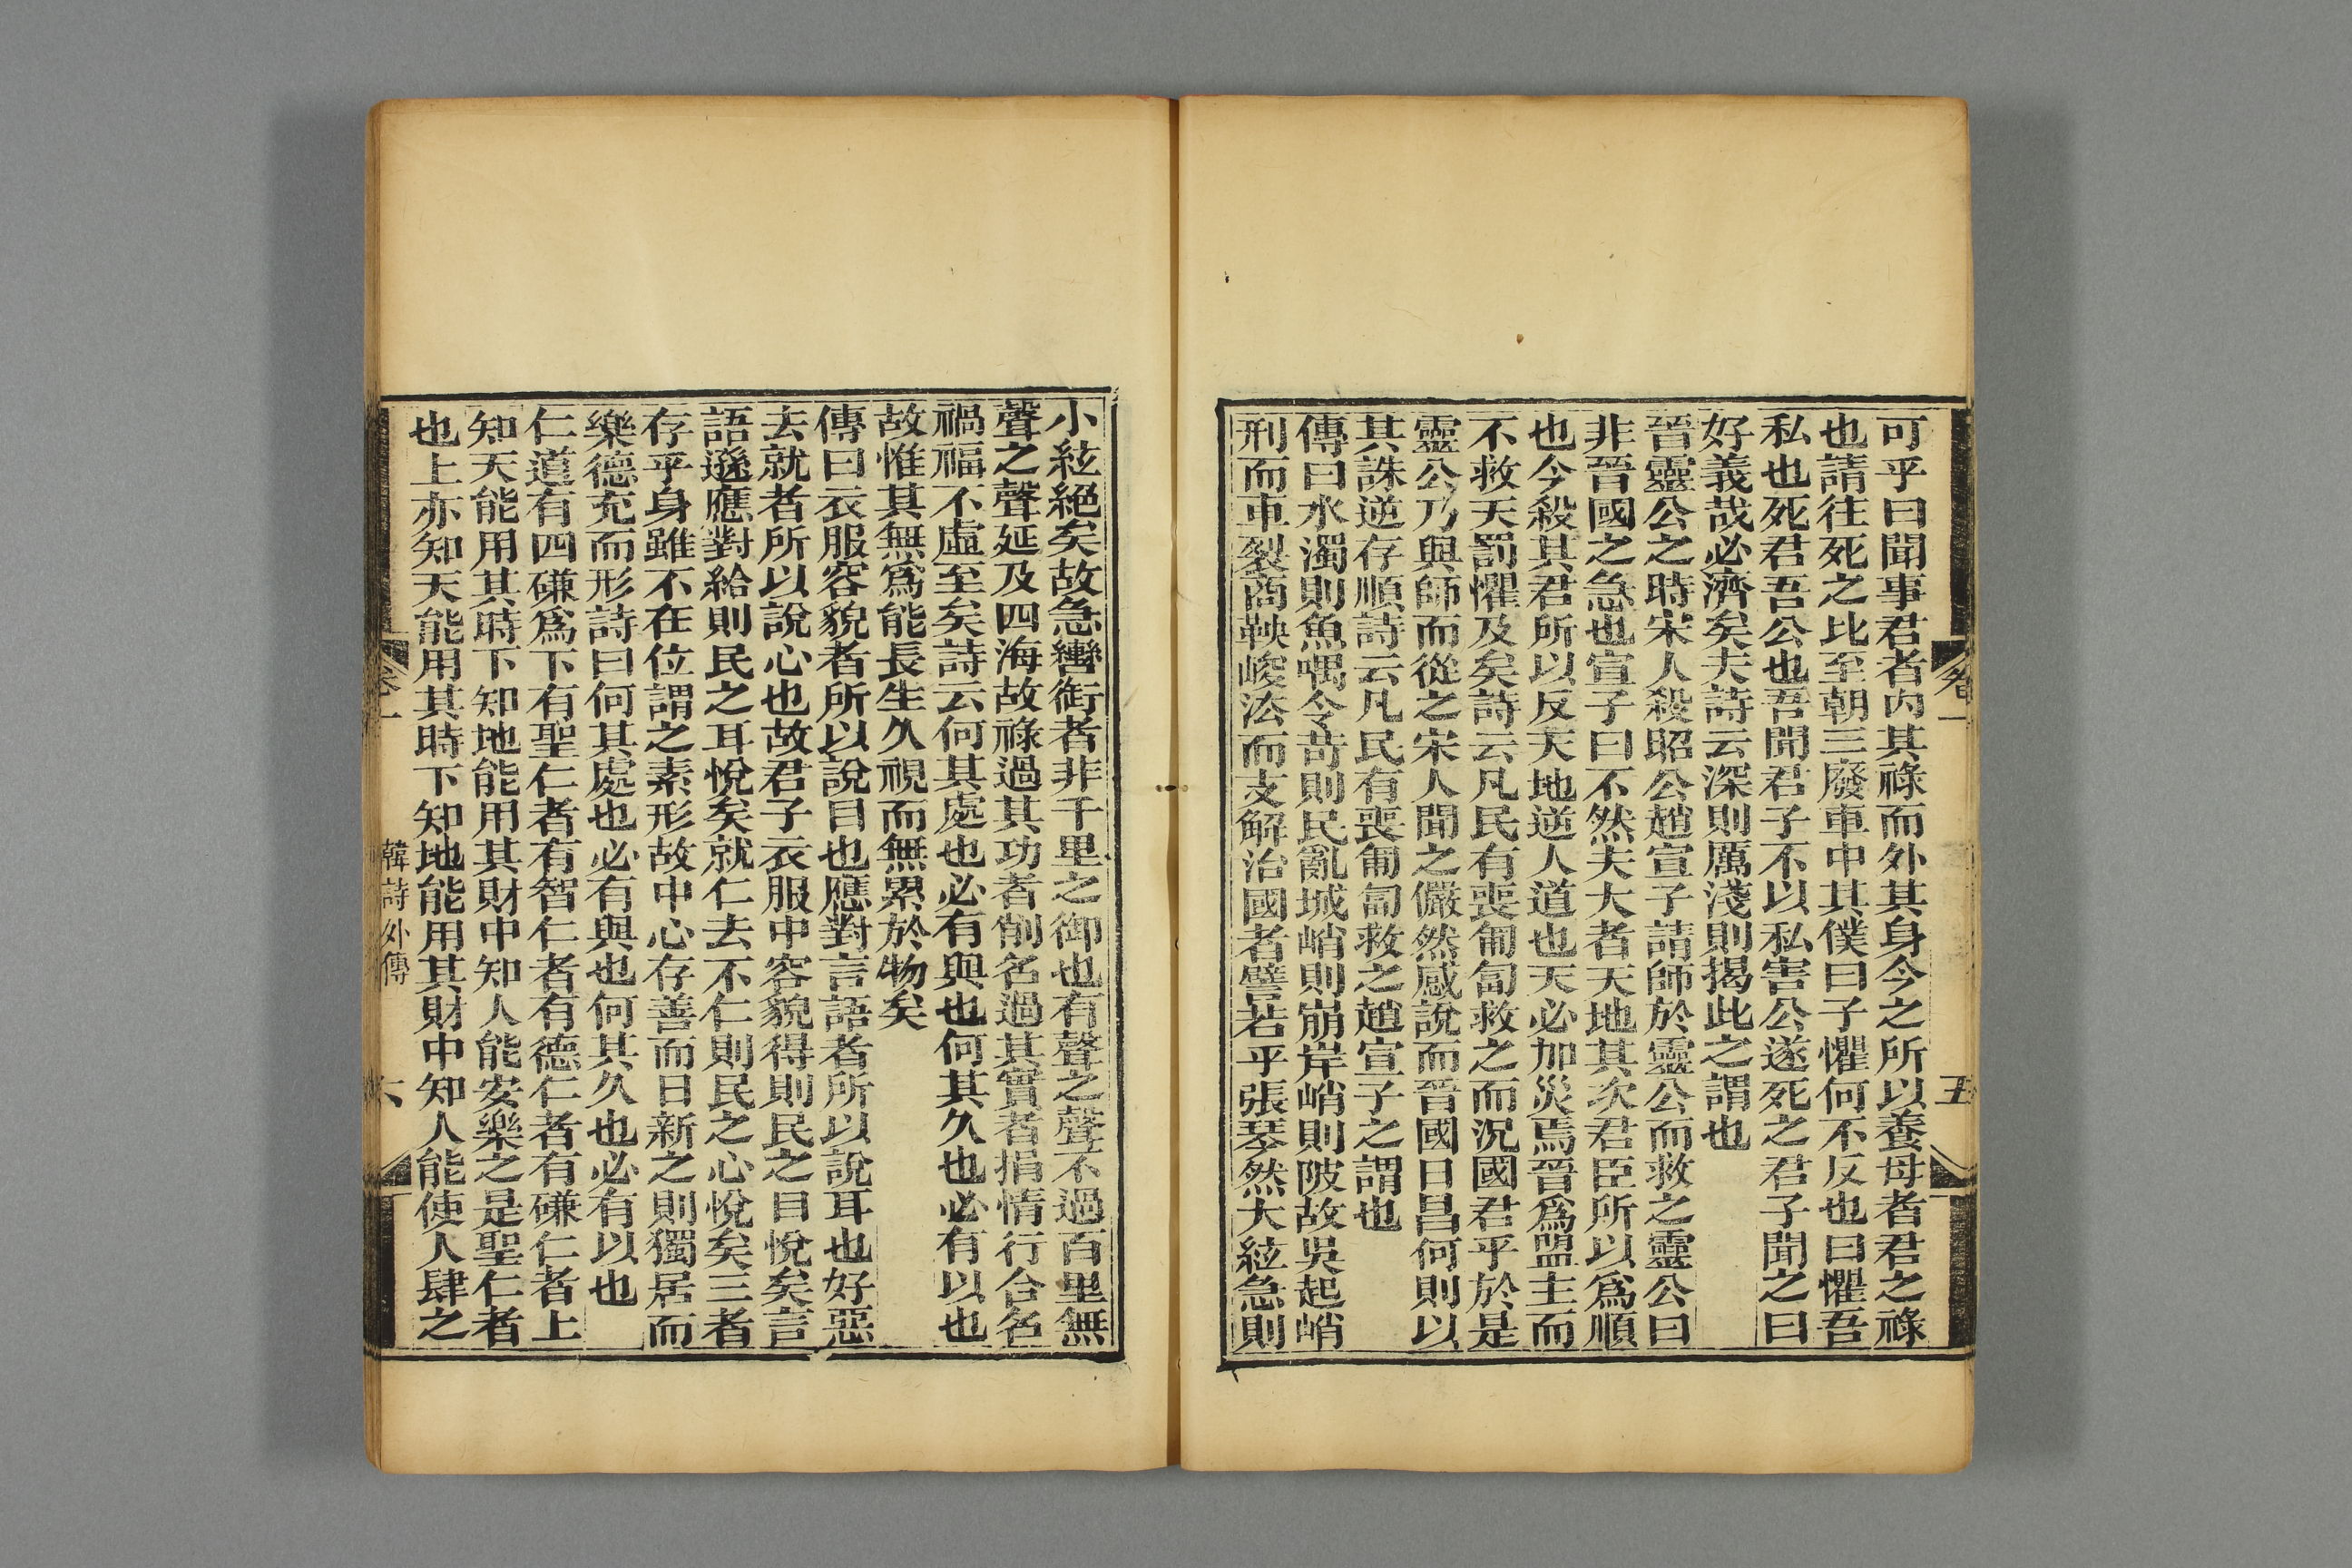 卷一
五
可乎曰聞事君者内其祿而外其身今之所以養母者君之祿
也請往死之比至朝三廢車中其僕曰子懼何不反也曰懼吾
私也死君吾公也吾聞君子不以私害公遂死之君子聞之曰
好義哉必濟矣夫詩云深則厲淺則揭此之謂也
晉靈公之時宋人殺昭公趙宣子請師於靈公而救之靈公曰
非晉國之急也宣子曰不然夫大者天地其次君臣所以爲順
也今殺其君所以反天地逆人道也天必加災焉晉爲盟主而
不救天罰懼及矣詩云凡民有喪匍匐救之而況國君乎於是
靈公乃與師而從之宋人聞之儼然感說而晉國日昌何則以
其誅逆存順詩云凡民有喪匍匐救之趙宣子之謂也
傳曰水濁則魚喁令苛則民亂城峭則崩岸峭則陂故吳起峭
刑而車裂商鞅峻法而支解治國者譬若乎張琴然大絃急則
小絃絕矣故急轡銜者非千里之御也有聲之聲不過百里無
聲之聲延及四海故祿過其功者削名過其實者損情行合名
禍福不虛至矣詩云何其處也必有與也何其久也必有以也
故惟其無爲能長生久視而無累於物矣
傳曰衣服容貌者所以說目也應對言語者所以說耳也好惡
去就者所以說心也故君子衣服中容貌得則民之目悅矣言
語遜應對給則民之耳悅矣就仁去不仁則民之心悅矣三者
存乎身雖不在位謂之素形故中心存善而日新之則獨居而
樂德充而形詩曰何其處也必有與也何其久也必有以也
仁道有四磏爲下有聖仁者有智仁者有德仁者有磏仁者上
知天能用其時下知地能用其財中知人能安樂之是聖仁者
也上亦知天能用其時下知地能用其財中知人能使人肆之
卷一
韓詩外傳
六